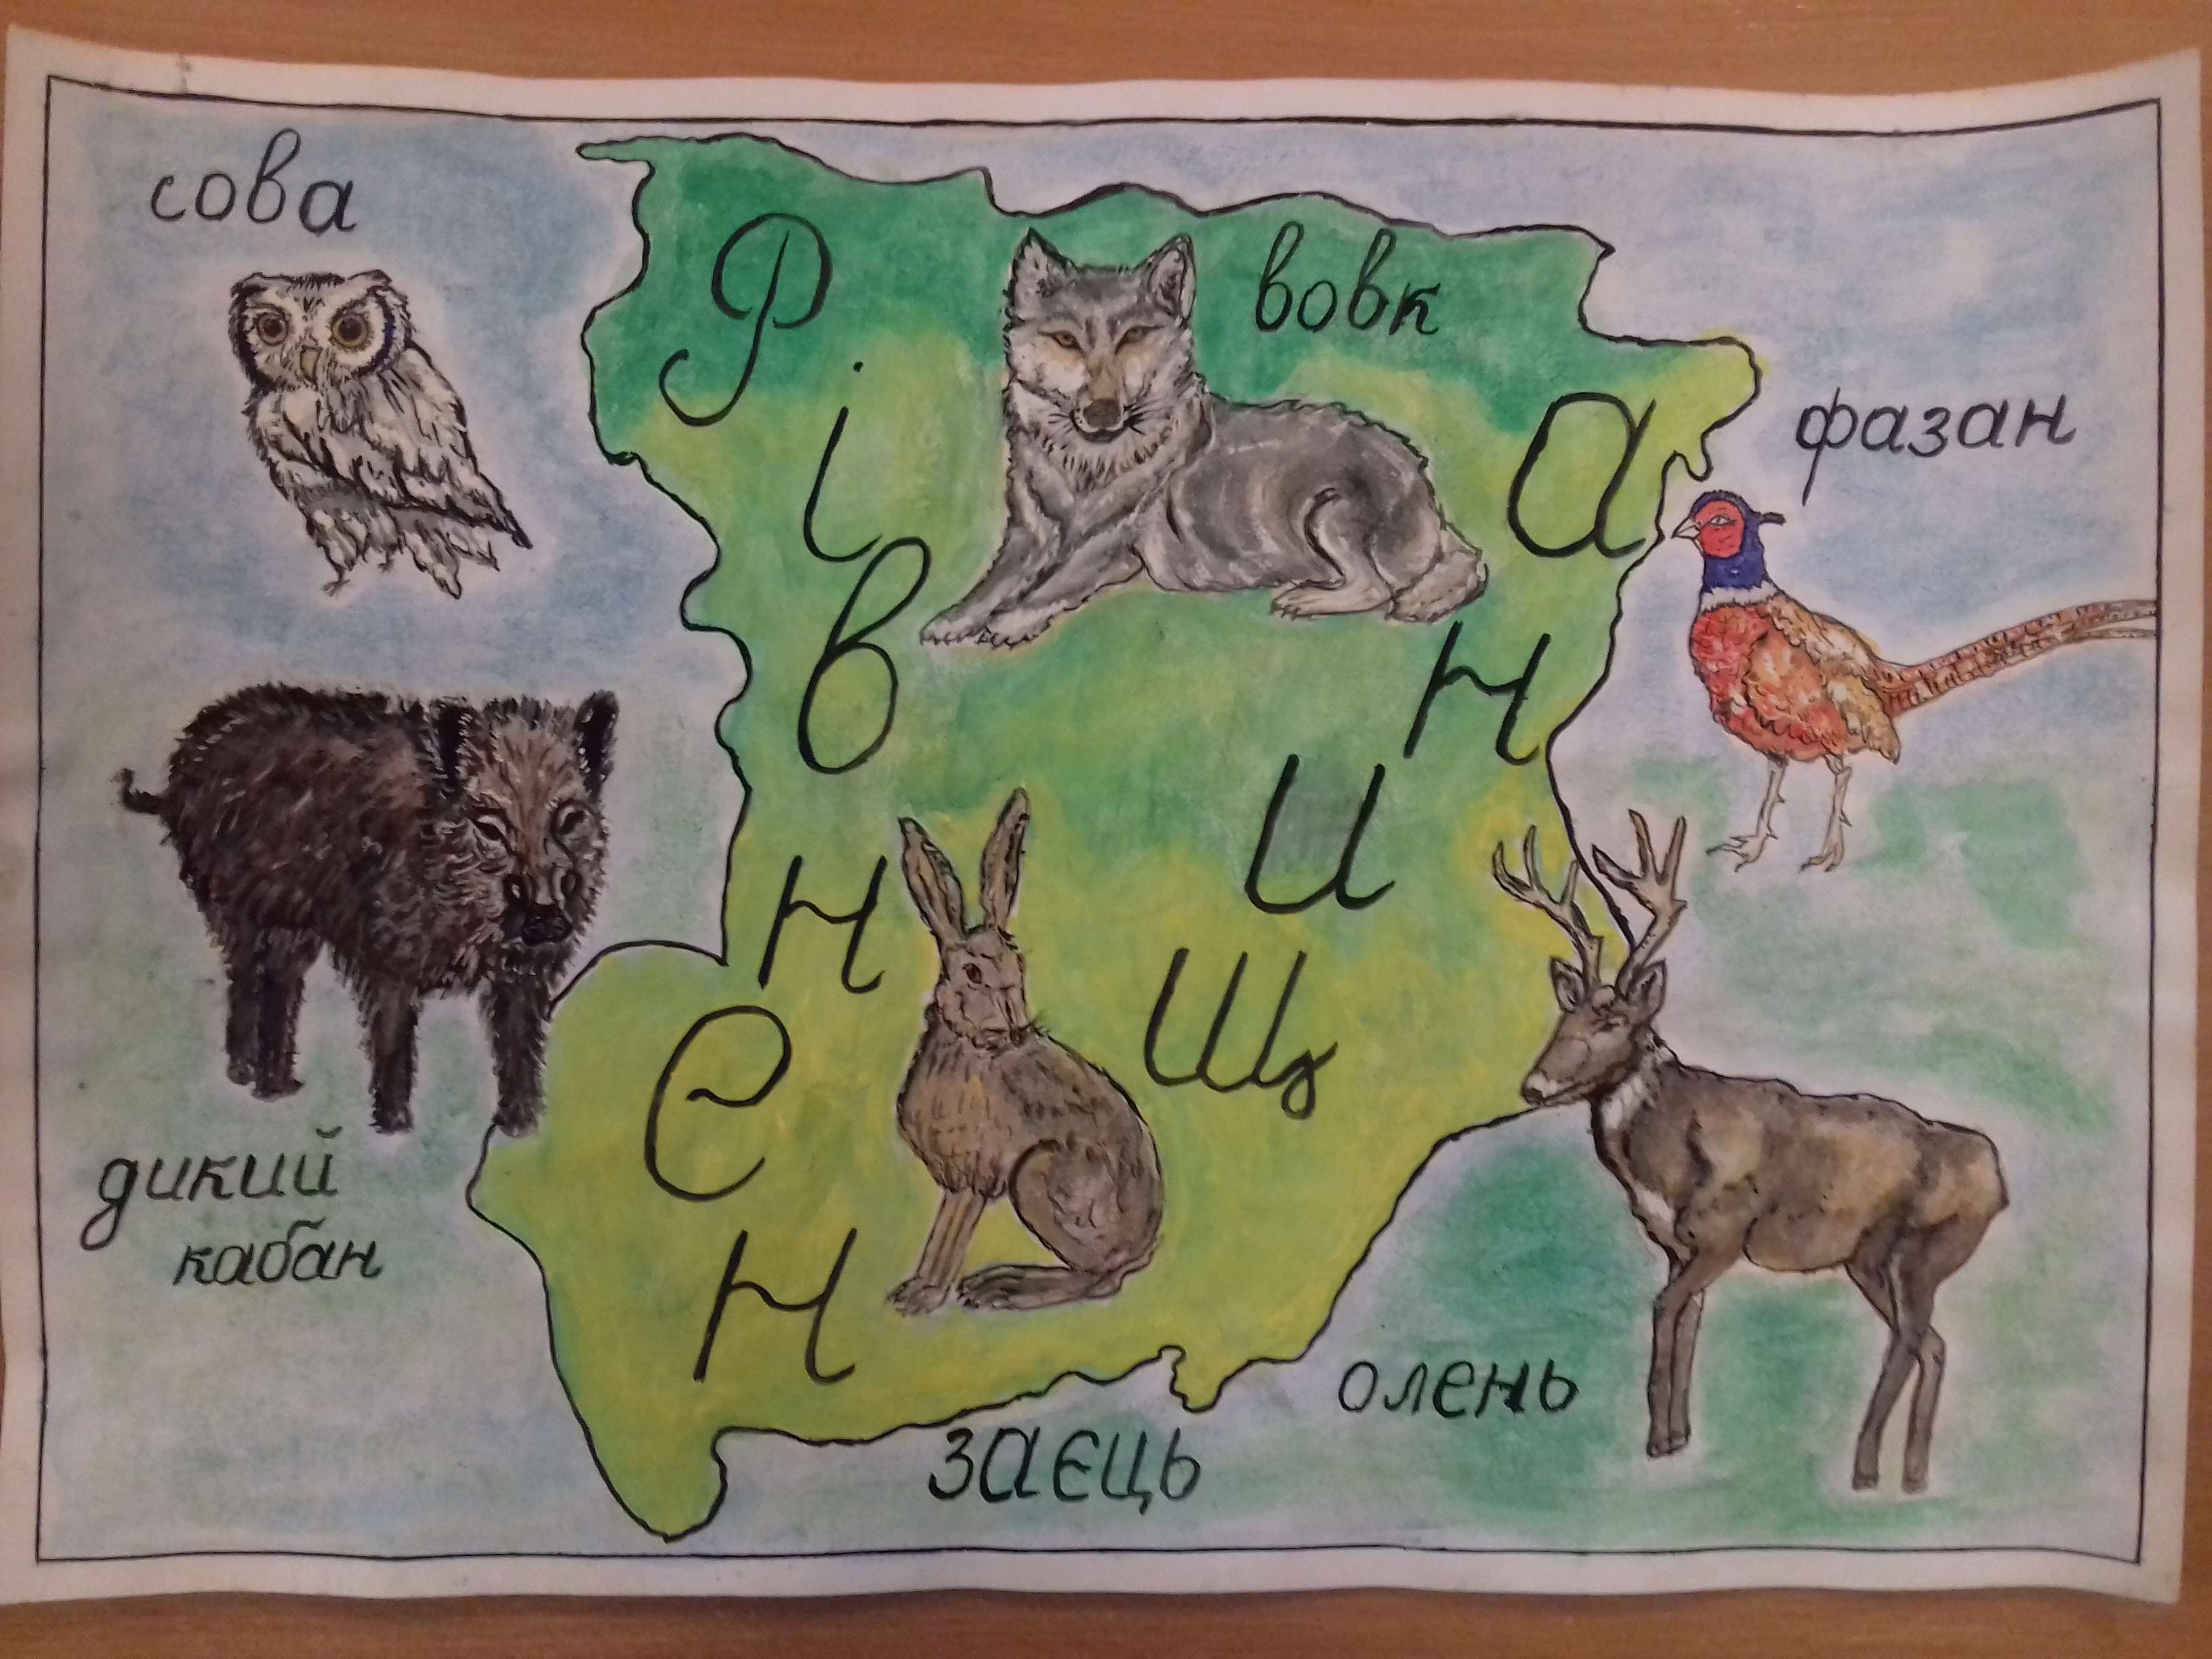 сова
Рівненщина
вовк
фазан
дикий
кабан
олень
заєць